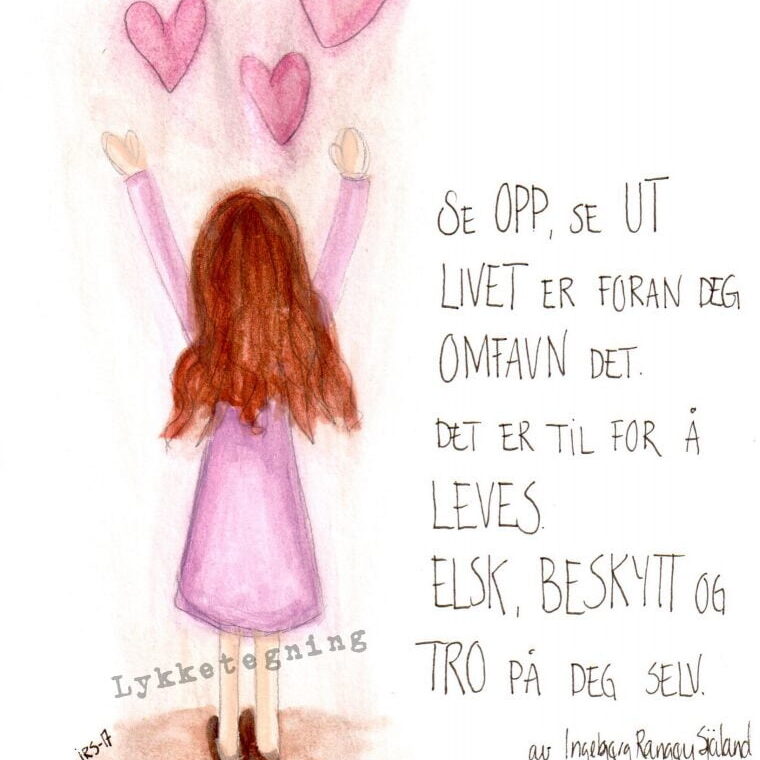 SE OPP, SE UT
LIVET ER FORAN DEG
OMFAVN DET.
DET ER TIL FOR Å
LEVES.
ELSK, BESKYTT OG
TRO PÅ DEG SELV.
Lykketegning
iRS-17
av Ingeborg